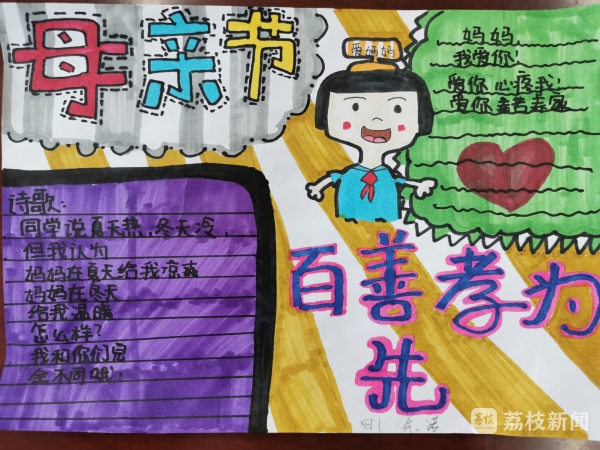 母亲节
爱妈妈
妈妈
我爱你!
爱你心疼我!
爱你辛苦养家
诗歌:
同学说夏天热,冬天冷,
但我认为
妈妈在夏天给我凉爽
妈妈在冬天
给我温暖
怎么样?
我和你们完
全不同哦!
百善孝为
先
荔枝
荔枝新闻